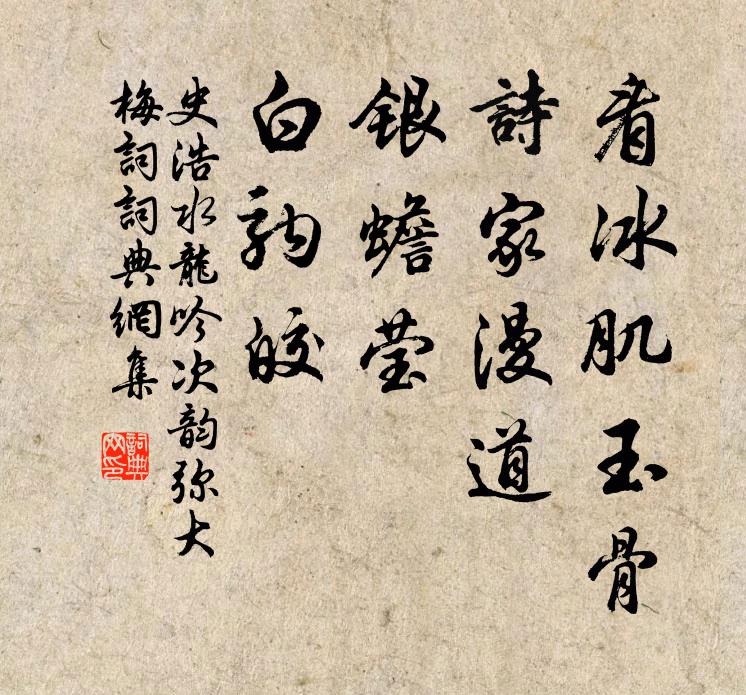 看冰肌玉骨
詩家漫道
銀蟾莹
白駒皎
史浩水龍吟次韵弥大
梅詞詞典網集
詞典
网印